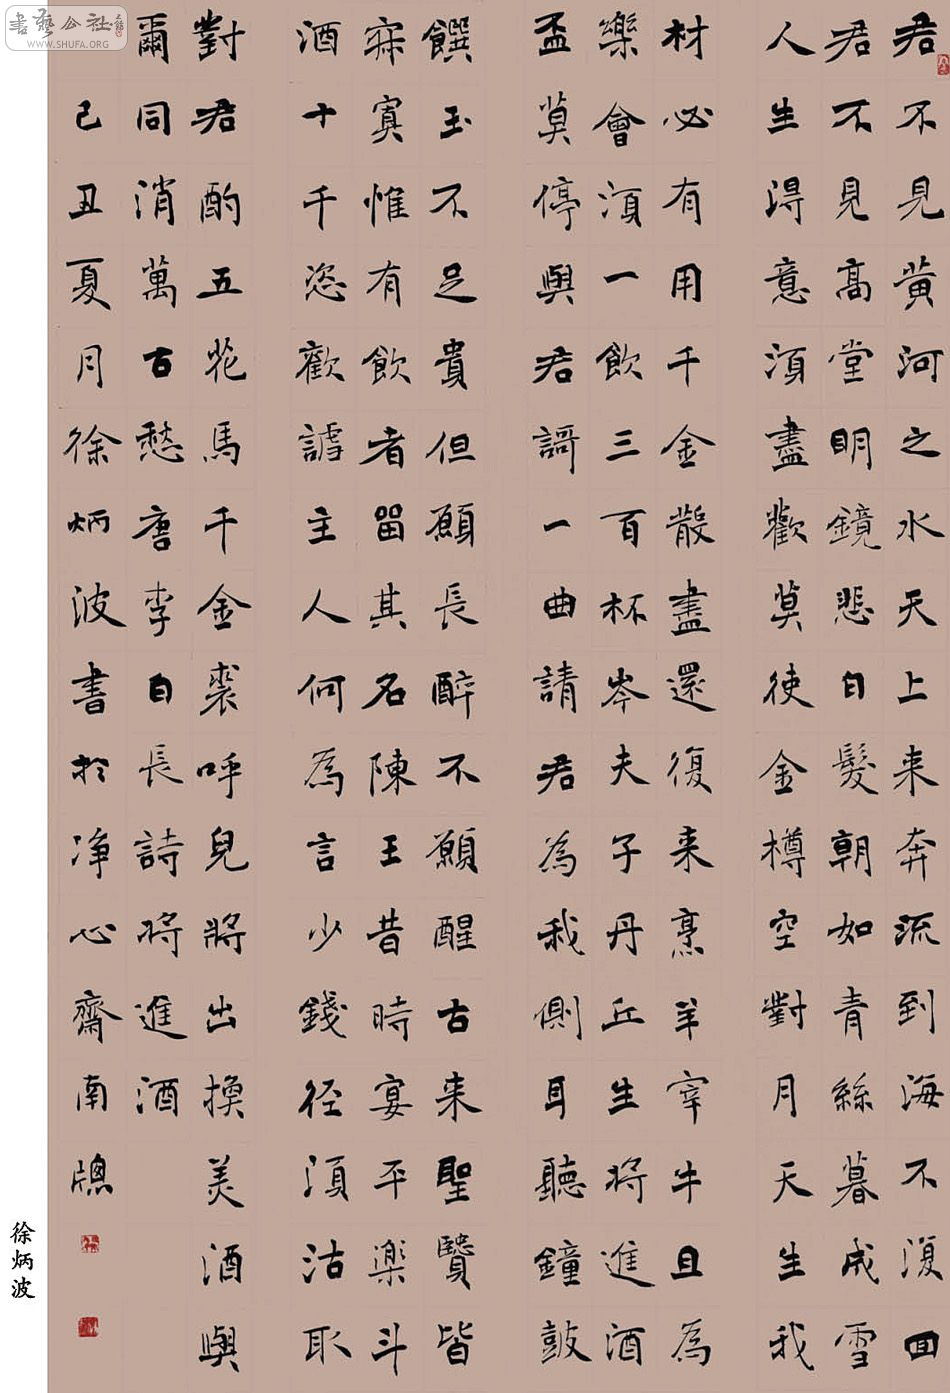 書藝公社
WWW.SHUFA.ORG
君不見黄河之水天上来奔流到海不復回
君不見高堂明鏡悲白髮朝如青絲暮成雪
人生得意須盡歡莫使金樽空對月天生我
材必有用千金散盡還復来烹羊宰牛且為
樂會須一飲三百杯岑夫子丹丘生將進酒
盃莫停與君謌一曲請君為我側耳聽鐘鼓
饌玉不足貴但願長醉不願醒古来聖賢皆
寂寞惟有飲者留其名陳王昔時宴平樂斗
酒十千恣歡謔主人何為言少錢径須沽取
對君酌五花馬千金裘呼兒將出換美酒與
爾同消萬古愁唐李白長詩將進酒
己丑夏月徐炳波書於净心齋南牕
徐炳波